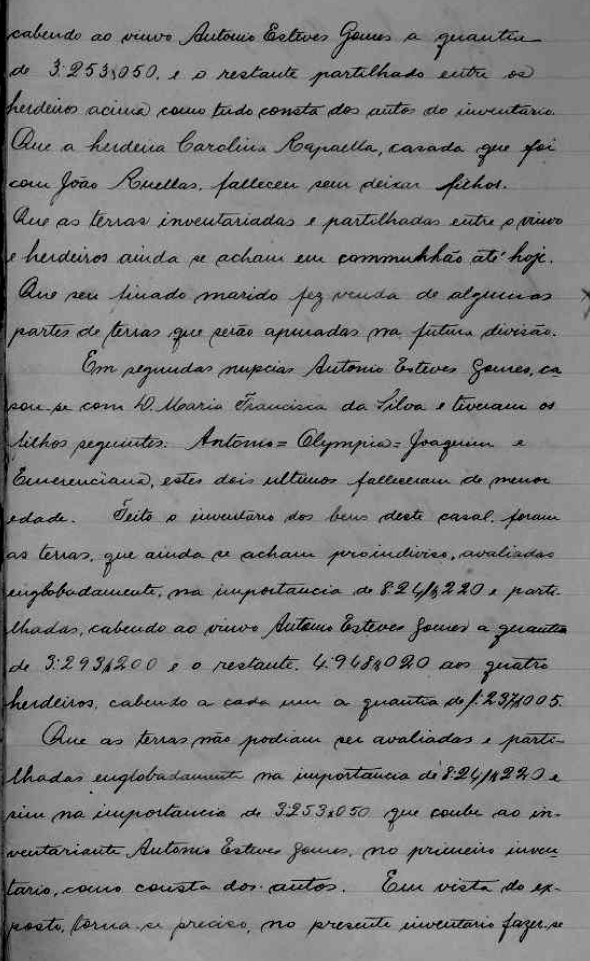 cabendo ao viuvo Antonio Esteves Gomes a quantia
de 3:253$050, e o restante partilhado entre os
herdeiros acima como tudo consta dos autos do inventario.
Que a herdeira Carolina Rapaella, casada que foi
com João Ruellas, falleceu sem deixar filhos.
Que as terras inventariadas e partilhadas entre o viuvo
e herdeiros ainda se acham em communhão até hoje.
Que seu finado marido fez venda de algumas
partes de terras que serão apuradas na futura divisão.
Em segundas nupcias Antonio Esteves Gomes, ca-
sou-se com D. Maria Francisca da Silva e tiveram os
filhos seguintes: Antonio = Olympia = Joaquim e
Emerenciana, estes dois ultimos falleceram de menor
edade. Feito o inventário dos bens deste casal, foram
as terras, que ainda se acham proindiviso, avaliadas
englobadamente, na importancia de 8:241$220 e parti-
lhadas, cabendo ao viuvo Antonio Esteves Gomes a quantia
de 3:293$200 e o restante, 4:948$020 aos quatro
herdeiros, cabendo a cada um a quantia de 1:237$005.
Que as terras não podiam ser avaliadas e parti-
lhadas englobadamente na importancia de 8:241$220 e
sim na importancia de 3:253$050 que coube ao in-
ventariante Antonio Esteves Gomes, no primeiro inven-
tario, como consta dos autos. Em vista do ex-
posto, torna-se preciso, no presente inventario fazer-se